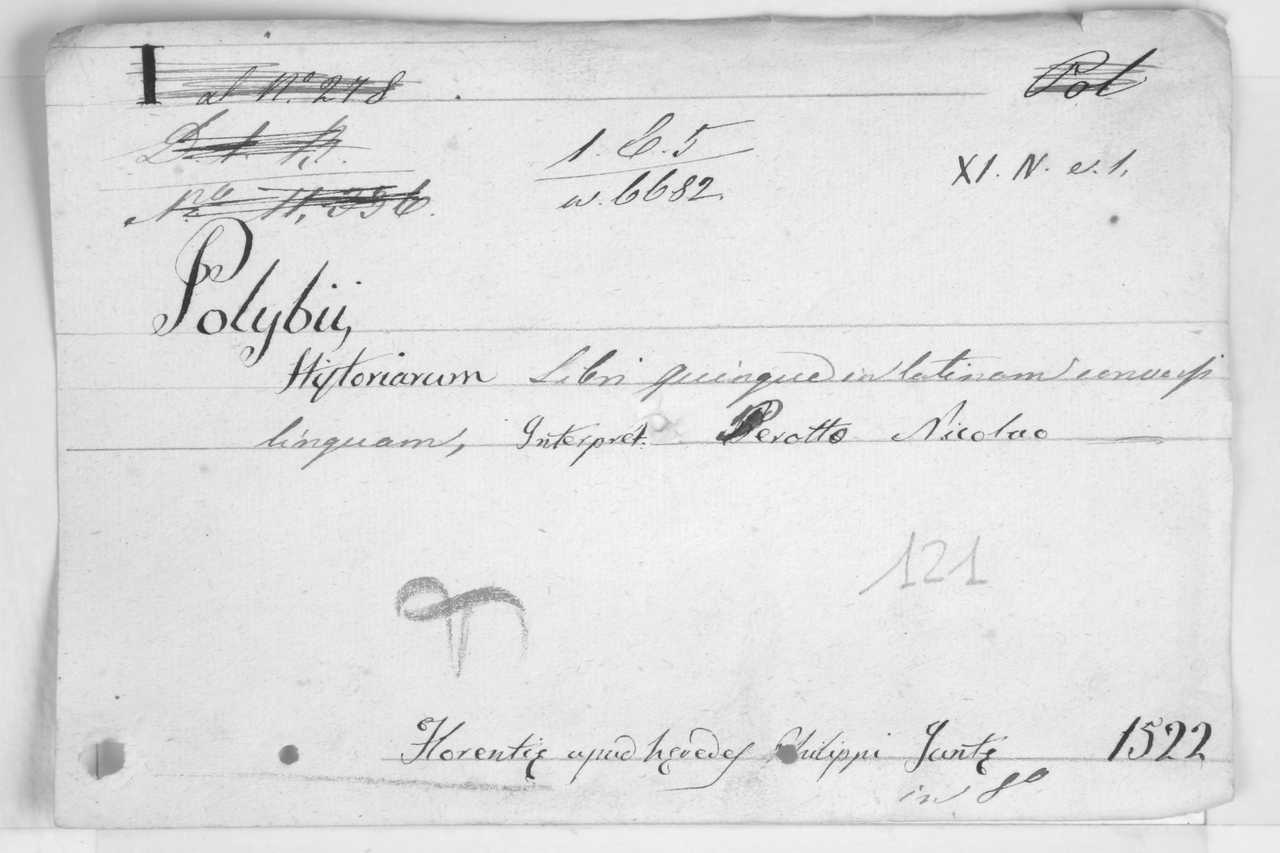 I al N.º 278 Pol
D. t. R. 1. C. 5 XI. N. e. 1.
N.ro 11,356. w. 6682.
Polybii,
Hystoriarum Libri quinque in latinam conversi
linguam, Interpret. Perotto Nicolao —
121
Florentię apud hęredes Philippi Juntę 1522
in 8º